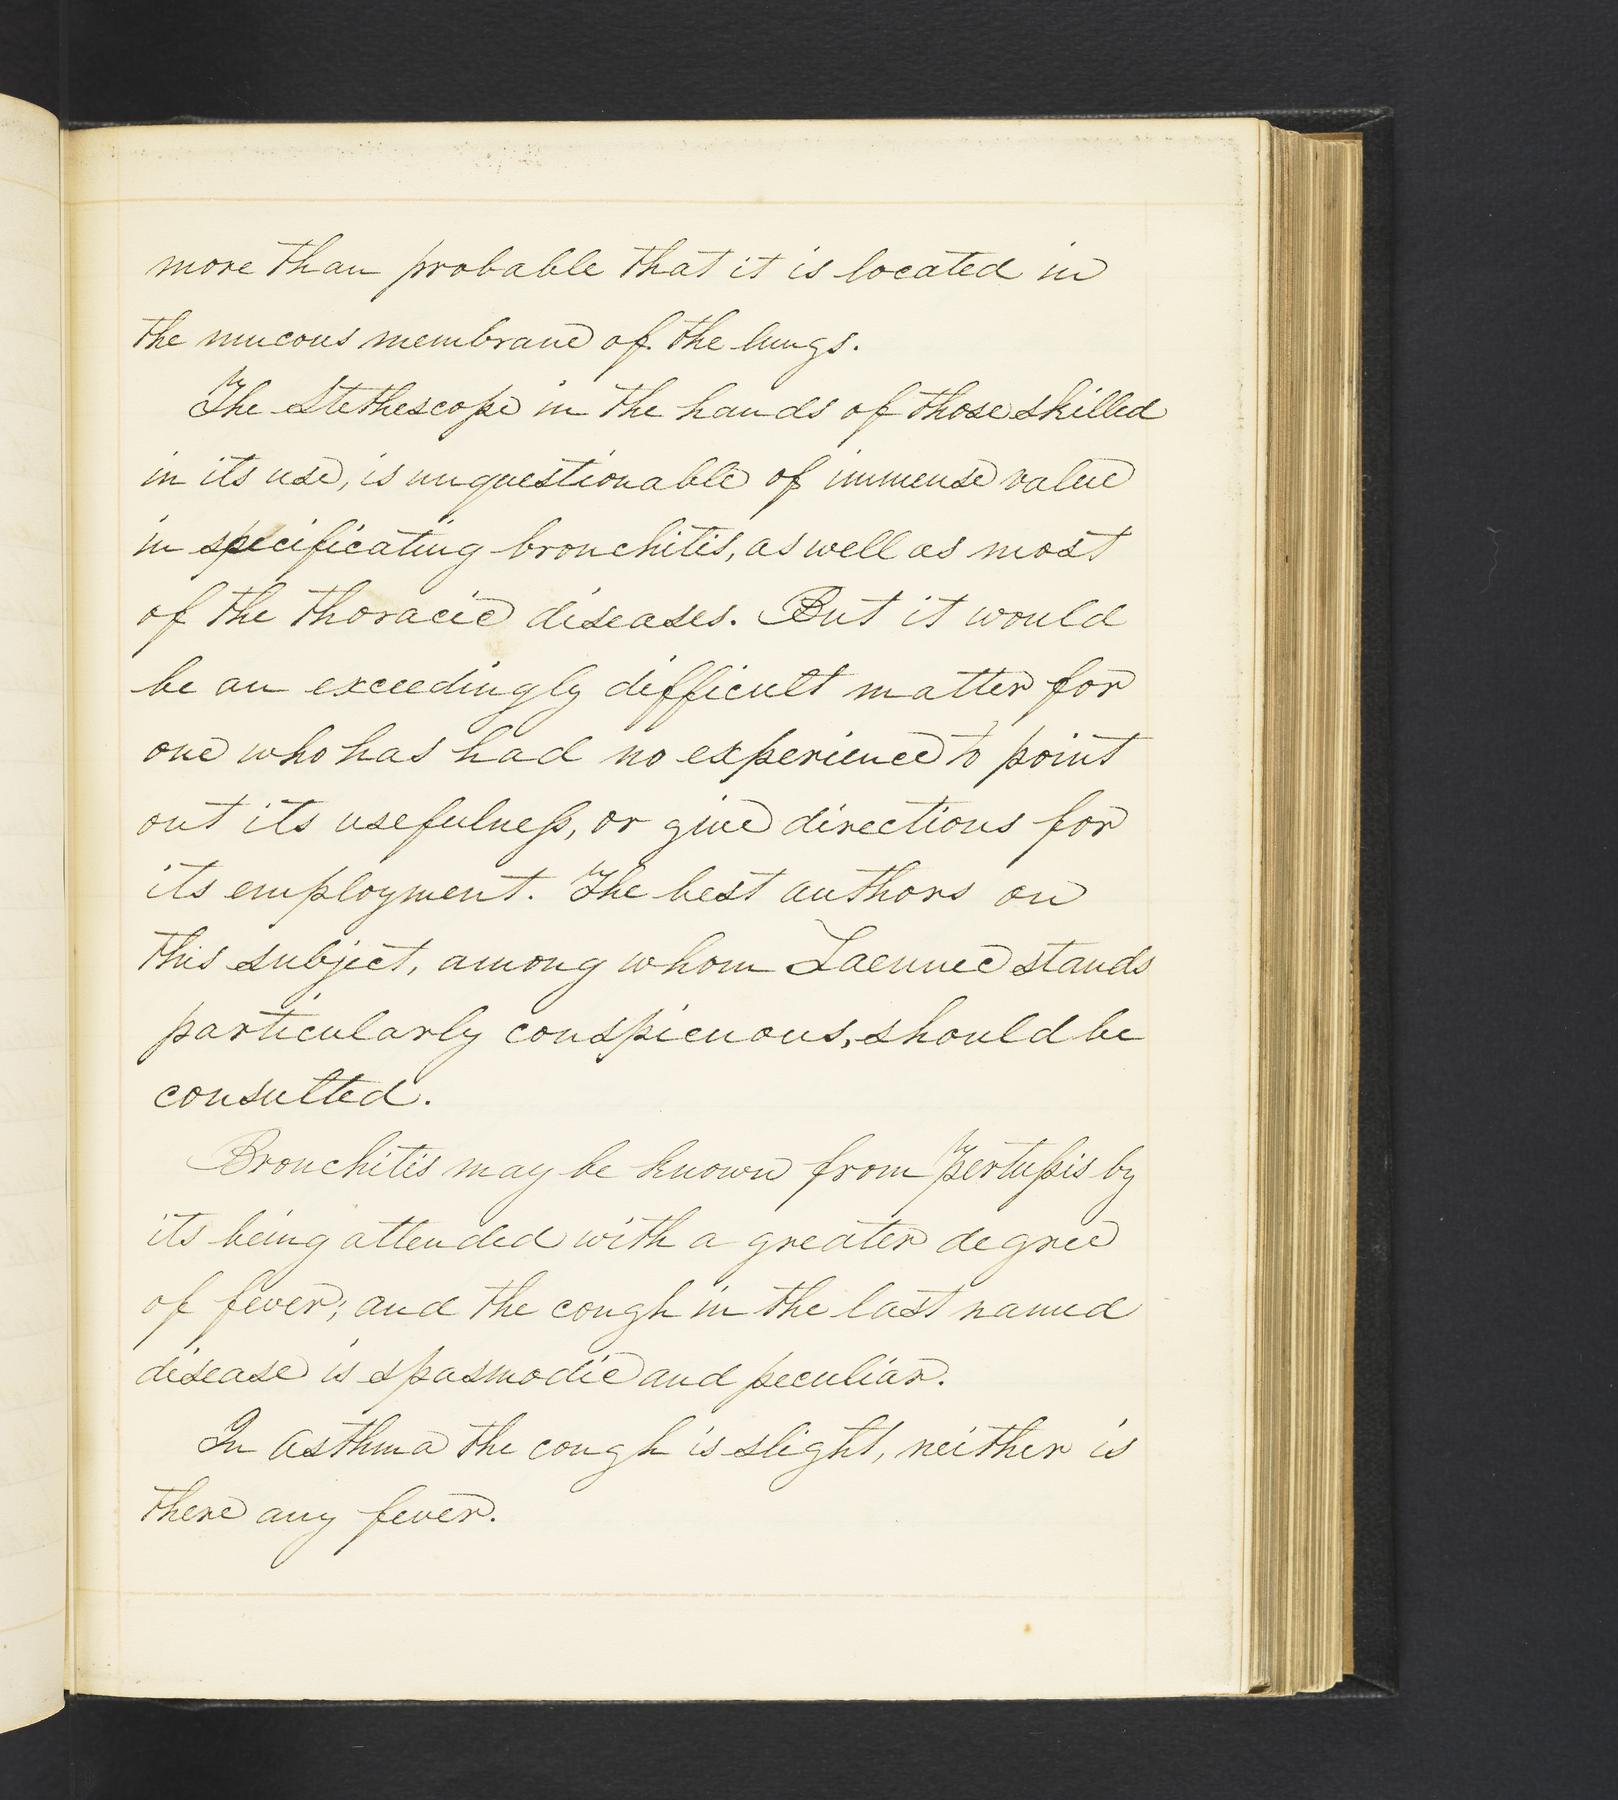 more than probable that it is located in
the mucous membrane of the lungs.
The Stethescope in the hands of those skilled
in its use, is unquestionable of immense value
in specificating bronchitis, as well as most
of the thoracic diseases. But it would
be an exceedingly difficult matter for
one who has had no experience to point
out its usefulness, or give directions for
its employment. The best authors on
this subject, among whom Laennec stands
particularly conspicuous, should be
consulted.
Bronchitis may be known from Pertussis by
its being attended with a greater degree
of fever; and the cough in the last named
disease is spasmodic and peculiar.
In Asthma the cough is slight, neither is
there any fever.